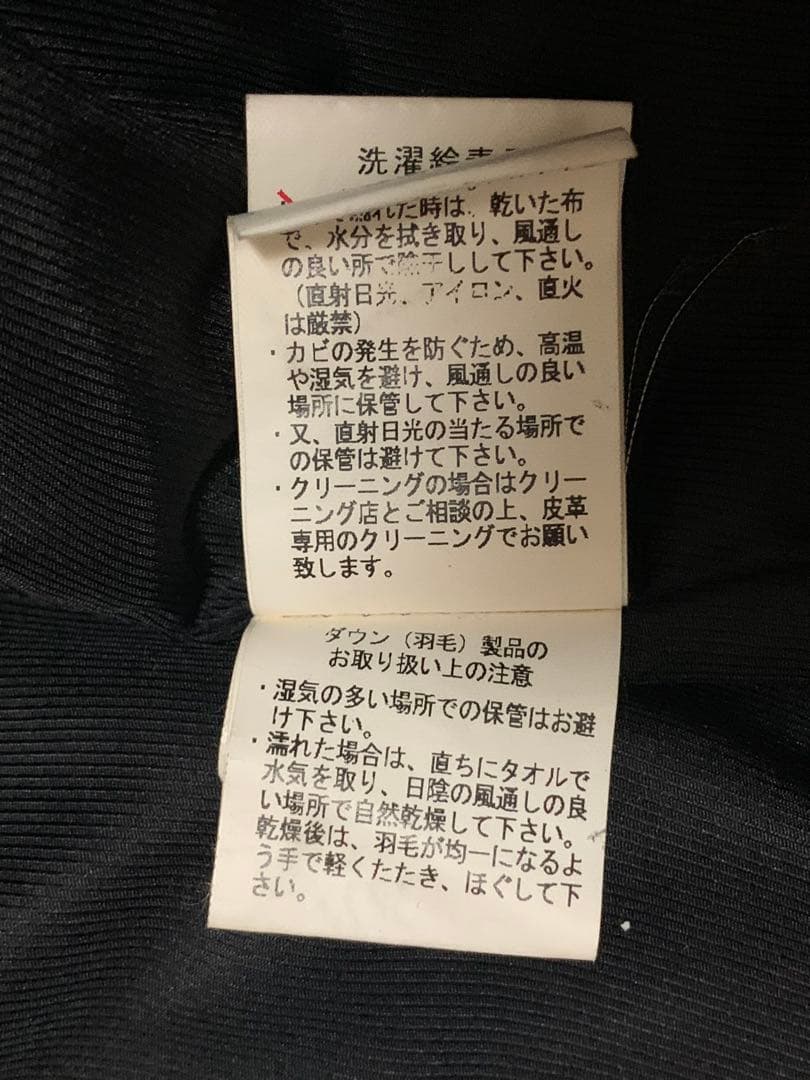 洗濯絵表示
た時は、乾いた布
で、水分を拭き取り、風通し
の良い所で陰干しして下さい。
(直射日光、アイロン、直火
は厳禁)
・カビの発生を防ぐため、高温
や湿気を避け、風通しの良い
場所に保管して下さい。
・又、直射日光の当たる場所で
の保管は避けて下さい。
・クリーニングの場合はクリー
ニング店とご相談の上、皮革
専用のクリーニングでお願い
致します。
ダウン(羽毛)製品の
お取り扱い上の注意
・湿気の多い場所での保管はお避
け下さい。
・濡れた場合は、直ちにタオルで
水気を取り、日陰の風通しの良
い場所で自然乾燥して下さい。
乾燥後は、羽毛が均一になるよ
う手で軽くたたき、ほぐして下
さい。